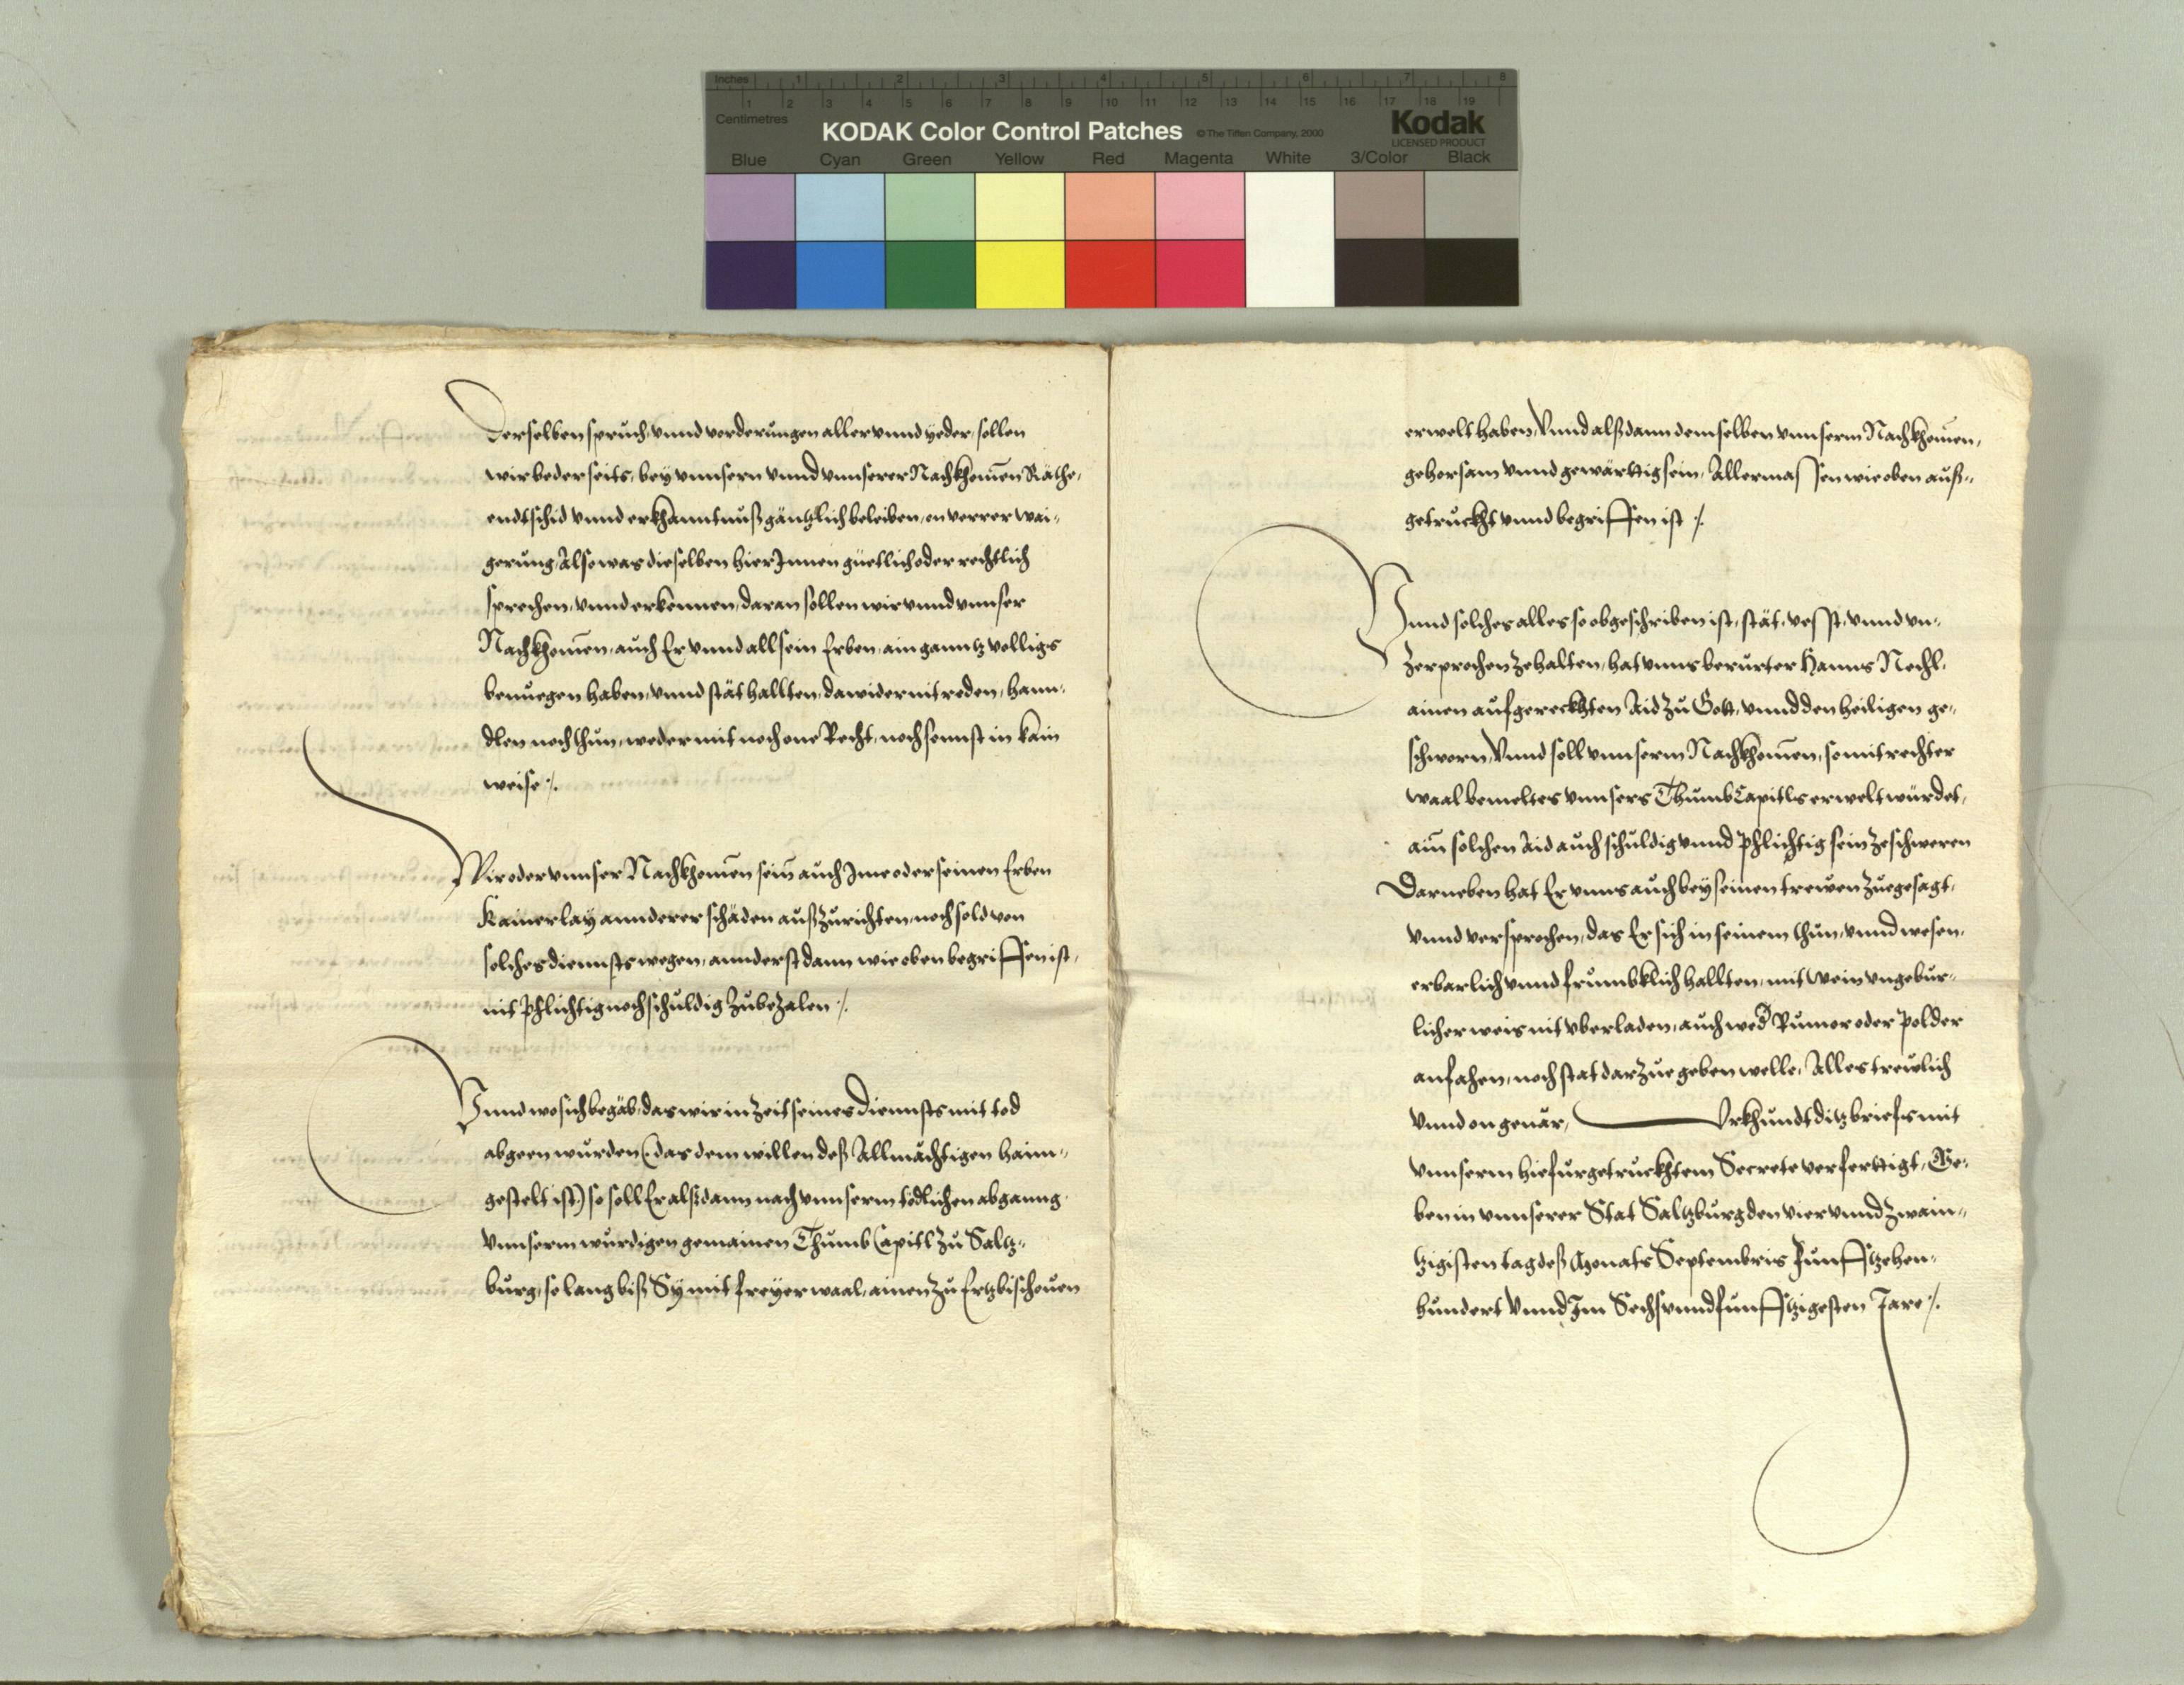 Inches 1 2 3 4 5 6 7 8
1 2 3 4 5 6 7 8 9 10 11 12 13 14 15 16 17 18 19
Centimetres
KODAK Color Control Patches © The Tiffen Company, 2000 Kodak
LICENSED PRODUCT
Blue Cyan Green Yellow Red Magenta White 3/Color Black
Derselben spruch, vnnd vorderungen aller vnnd yeder, sollen
wir bederseits, bey vnnsern vnnd vnnserer Nachkhomen̄ Räthe,
endtschid vnnd erkhanntnuß gäntzlich beleiben, on verrer wai-
gerung, Also was dieselben hierJnnen güetlich oder rechtlich
sprechen, vnnd erkennen, daran sollen wir vnnd vnnser
Nachkhomen̄, auch Er vnnd all sein Erben, ain ganntz volligs
benuegen haben, vnnd stät hallten, dawider nit reden, hann-
dlen noch thun, weder mit noch one Recht, noch sonnst in kain
weise ./.
Wir oder vnnser Nachkhomen̄ sein̄ auch Jme oder seinen Erben
kainerlay annderer schäden außzurichten, noch sold von
solches diennsts wegen, annderst dann wie oben begriffen ist,
nit phlichtig noch schuldig zubezalen ./.
Vnnd wo sich begäb, das wir in zeit seines Diennsts mit tod
abgeen wurden (das dem willen deß Allmächtigen haim-
gestelt ist) so soll Er alßdann nach vnnserm tödlichen abganng
vnnserm wurdigen gemainen Thumb Capitl zu Saltz-
burg, so lang biß Sy mit freyer waal, ainen zu Ertzbischouen
erwelt haben, Vnnd alßdann demselben vnnserm Nachkhomen̄,
gehorsam vnnd gewärttig sein, Allermassen wie oben auß-
getruckht vnnd begriffen ist ./.
Vnnd solches alles so obgeschriben ist, stät, vesst, vnnd vn-
zerprochen zehalten, hat vnns berurter Hanns Nechl,
ainen aufgereckhten Aid zu Gott, vnnd den heiligen ge-
schworn, Vnnd soll vnnserm Nachkhomen̄, so mit rechter
waal bemeltes vnnsers ThumbCapitls erwelt würdet,
ain̄ solchen Aid auch schuldig vnnd phlichtig sein zeschweren
Darneben hat Er vnns auch bey seinen trewen zuegesagt,
vnnd versprochen, das Er sich in seinem thun, vnnd wesen,
erbarlich vnnd frumbklich hallten, mit wein vngebur-
licher weis nit vberladen, auch wed Rumor oder polder
anfahen, noch stat darzue geben welle, Alles trewlich
vnnd on geuär, Vrkhundt ditz briefs mit
vnnserm hiefurgetruckhtem Secrete verferttigt, Ge-
ben in vnnserer Stat Saltzburg den vier vnnd zwain-
tzigisten tag deß Monats Septembris Funfftzehen-
hundert Vnnd Jm Sechsvnndfunfftzigesten Jare ./.